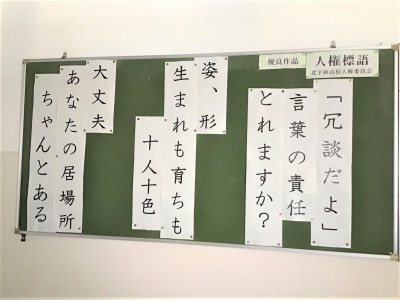 人権標語
北宇和高校人権委員会
優良作品
「冗談だよ」
言葉の責任
とれますか?
姿、形
生まれも育ちも
十人十色
大丈夫
あなたの居場所
ちゃんとある